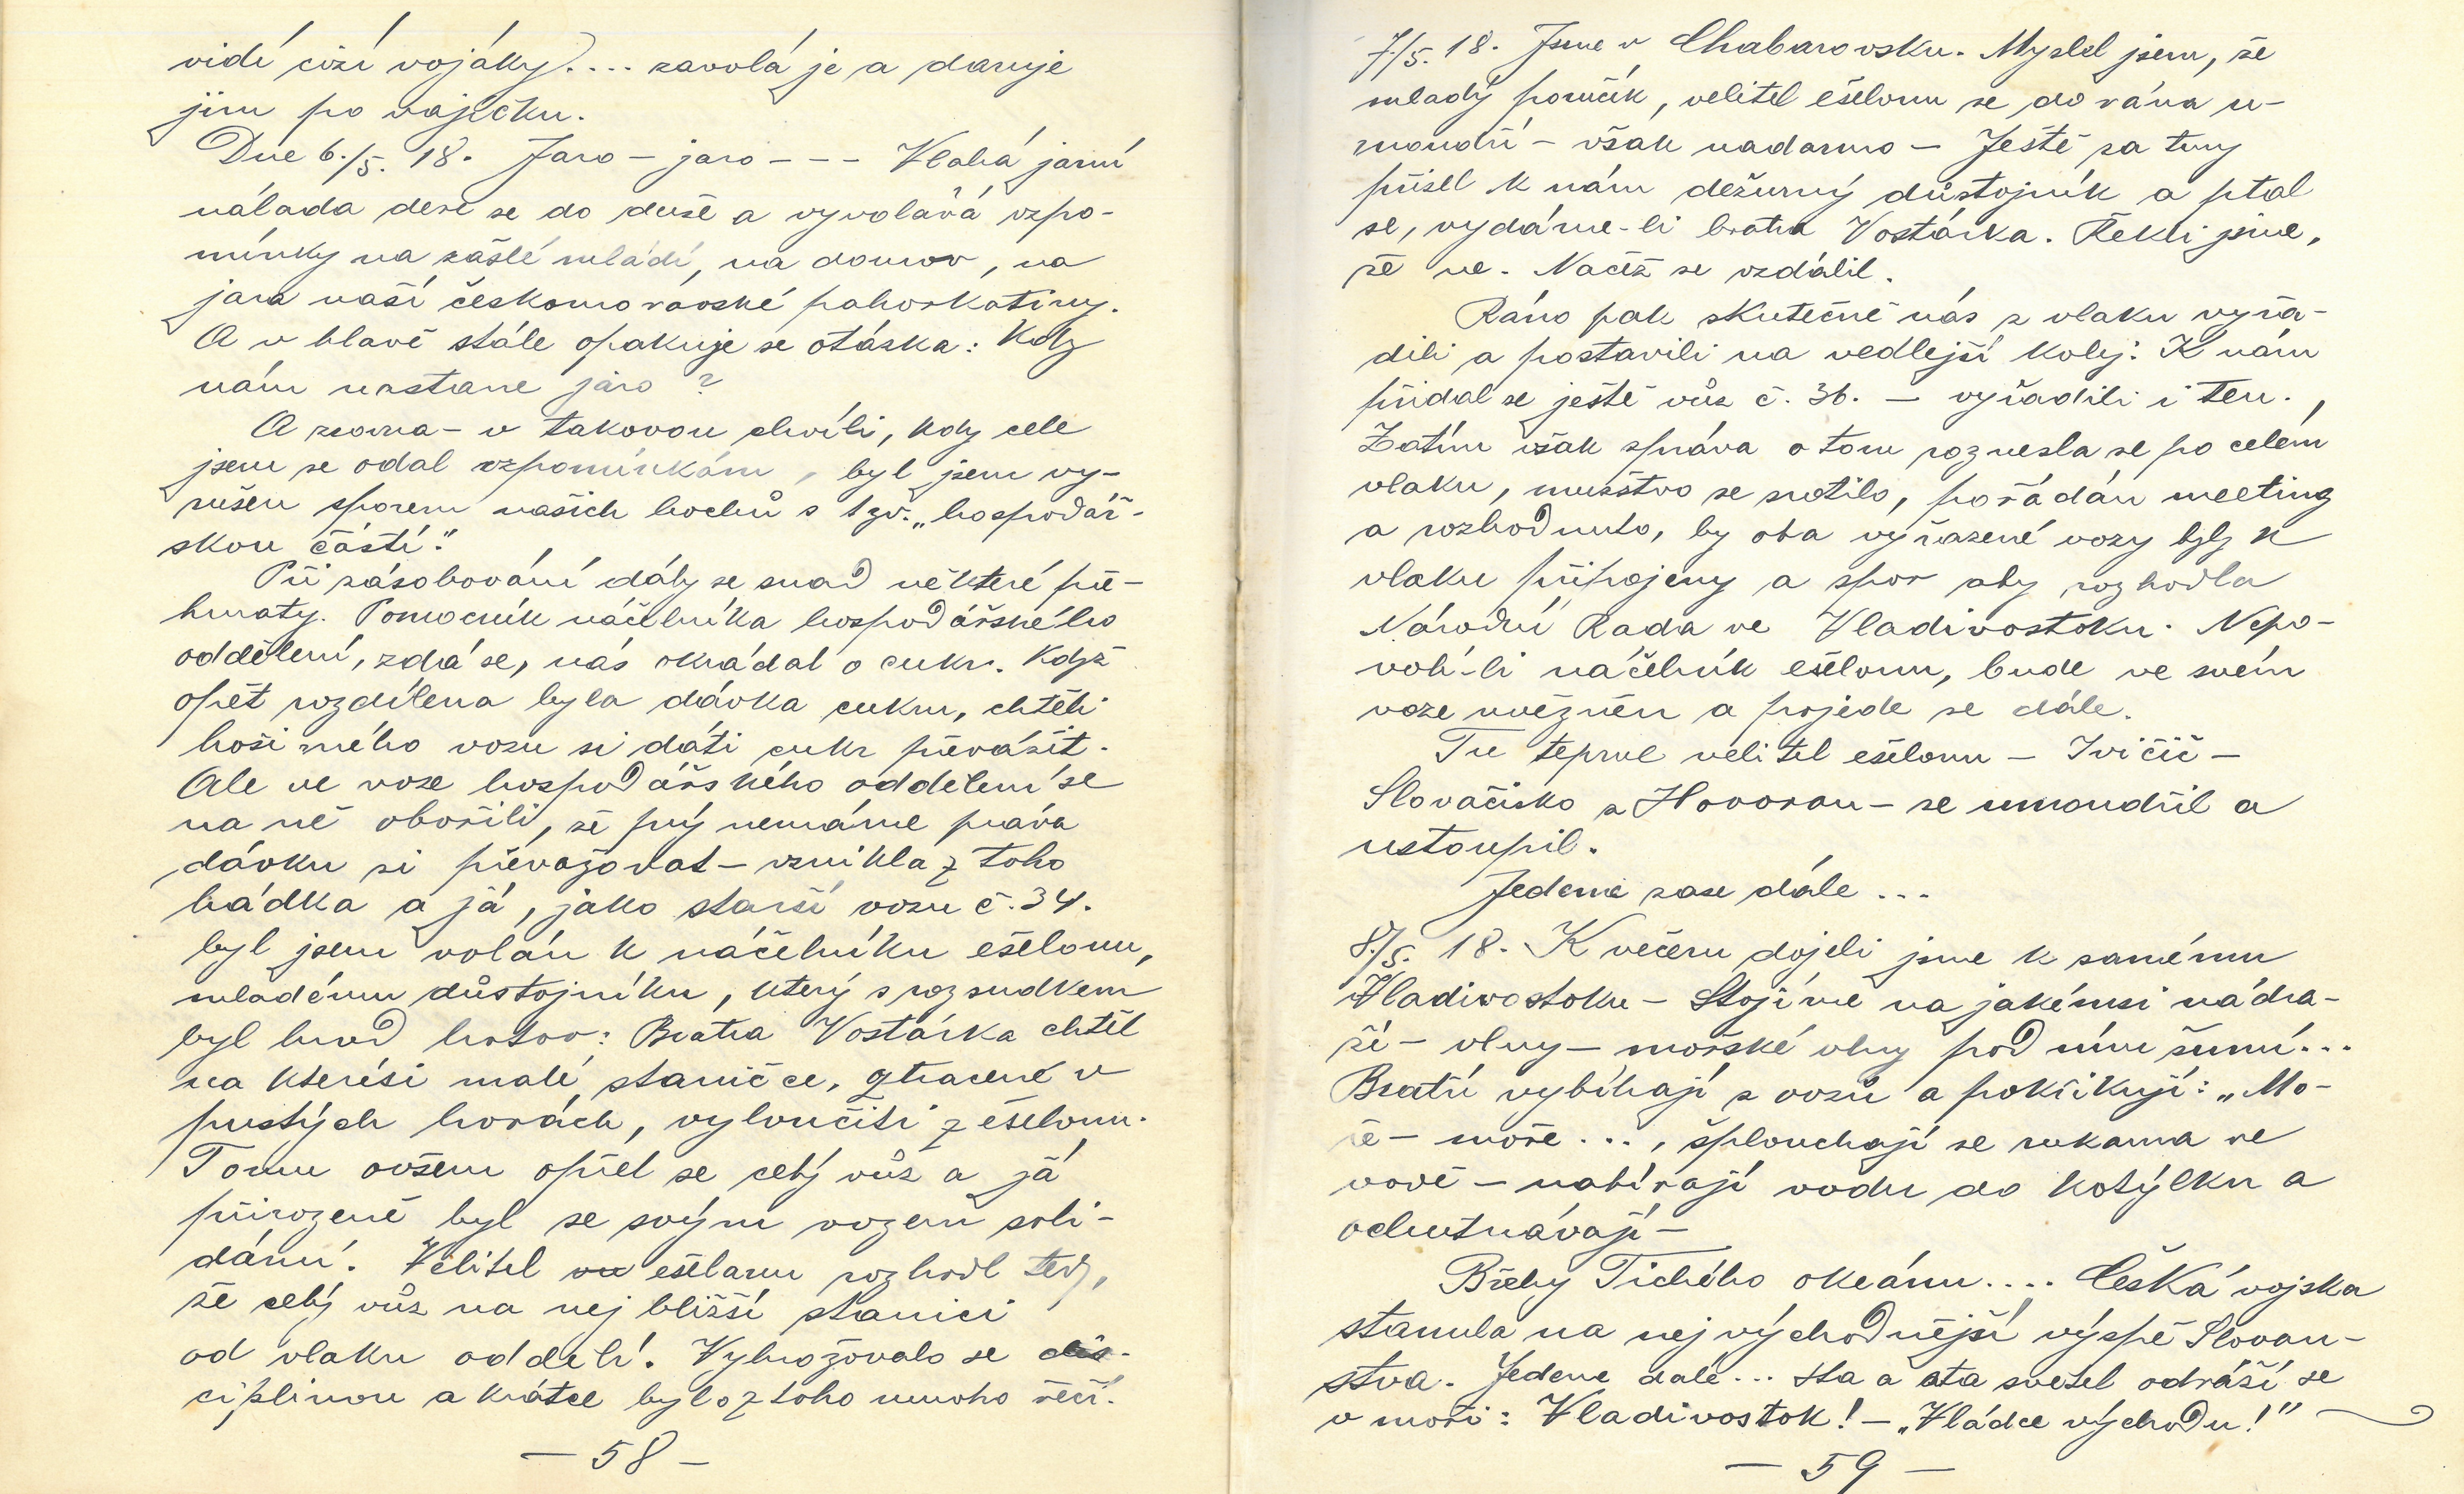 vidí cizí vojáky.... zavolá je a daruje
jim po vajíčku.
Dne 6./5. 18. Jaro – jaro – – – Vlahá jarní
nálada dere se do duše a vyvolává vzpo-
mínky na zašlé mládí, na domov, na
jara naší českomoravské pahorkatiny.
A v hlavě stále opakuje se otázka: Kdy
nám nastane jaro?
A zrovna – v takovou chvíli, kdy cele
jsem se odal vzpomínkám, byl jsem vy-
rušen sporem našich hochů s tzv. „hospodář-
skou částí."
Při zásobování dály se snad některé pře-
hmaty. Pomocník náčelníka hospodářského
oddělení, zdá se, nás okrádal o cukr. Když
opět rozdílena byla dávka cukru, chtěli
hoši mého vozu si dáti cukr převážit.
Ale ve voze hospodářského oddělení se
na ně obořili, že prý nemáme práva
dávku si převažovat – vznikla z toho
hádka a já, jako starší vozu č. 34.
byl jsem volán k náčelníku ešelonu,
mladému důstojníku, který s rozsudkem
byl hned hotov: Bratra Vostárka chtěl
na kterési malé staničce, ztracené v
pustých horách, vyloučiti z ešelonu.
Tomu ovšem opřel se celý vůz a já
přirozeně byl se svým vozem soli-
dární. Velitel ešelonu rozhodl tedy,
že celý vůz na nejbližší stanici
od vlaku oddělí. Vyhrožovalo se dis-
ciplinou a krátce bylo z toho mnoho řečí.
– 58 –
7./5. 18. Jsme v Chabarovsku. Myslel jsem, že
mladý poručík, velitel ešelonu se do rána u-
moudří – však nadarmo – Ještě za tmy
přišel k nám dežurný důstojník a ptal
se, vydáme-li bratra Vostárka. Řekli jsme,
že ne. Načež se vzdálil.
Ráno pak skutečně nás z vlaku vyřa-
dili a postavili na vedlejší kolej. K nám
přidal se ještě vůz č. 36. – vyřadili i ten.
Zatím však zpráva o tom roznesla se po celém
vlaku, mužstvo se srotilo, pořádán meeting
a rozhodnuto, by oba vyřazené vozy byly k
vlaku připojeny a spor aby rozhodla
Národní Rada ve Vladivostoku. Nepo-
volí-li náčelník ešelonu, bude ve svém
voze uvězněn a pojede se dále.
Tu teprve velitel ešelonu – Ivičič –
Slováčisko z Hovoran – se umoudřil a
ustoupil.
Jedeme zase dále ...
8./5. 18. K večeru dojeli jsme k samému
Vladivostoku – Stojíme na jakémsi nádra-
ží – vlny – mořské vlny pod ním šumí...
Bratří vybíhají z vozů a pokřikují: „Mo-
ře – moře ..., šplouchají se rukama ve
vodě – nabírají vodu do kotýlku a
ochutnávají –
Břehy Tichého okeánu.... Česká vojska
stanula na nejvýchodnější výspě Slovan-
stva. Jedeme dále... sta a sta světel odráží se
v moři: Vladivostok! – „Vládce východu!"
– 59 –